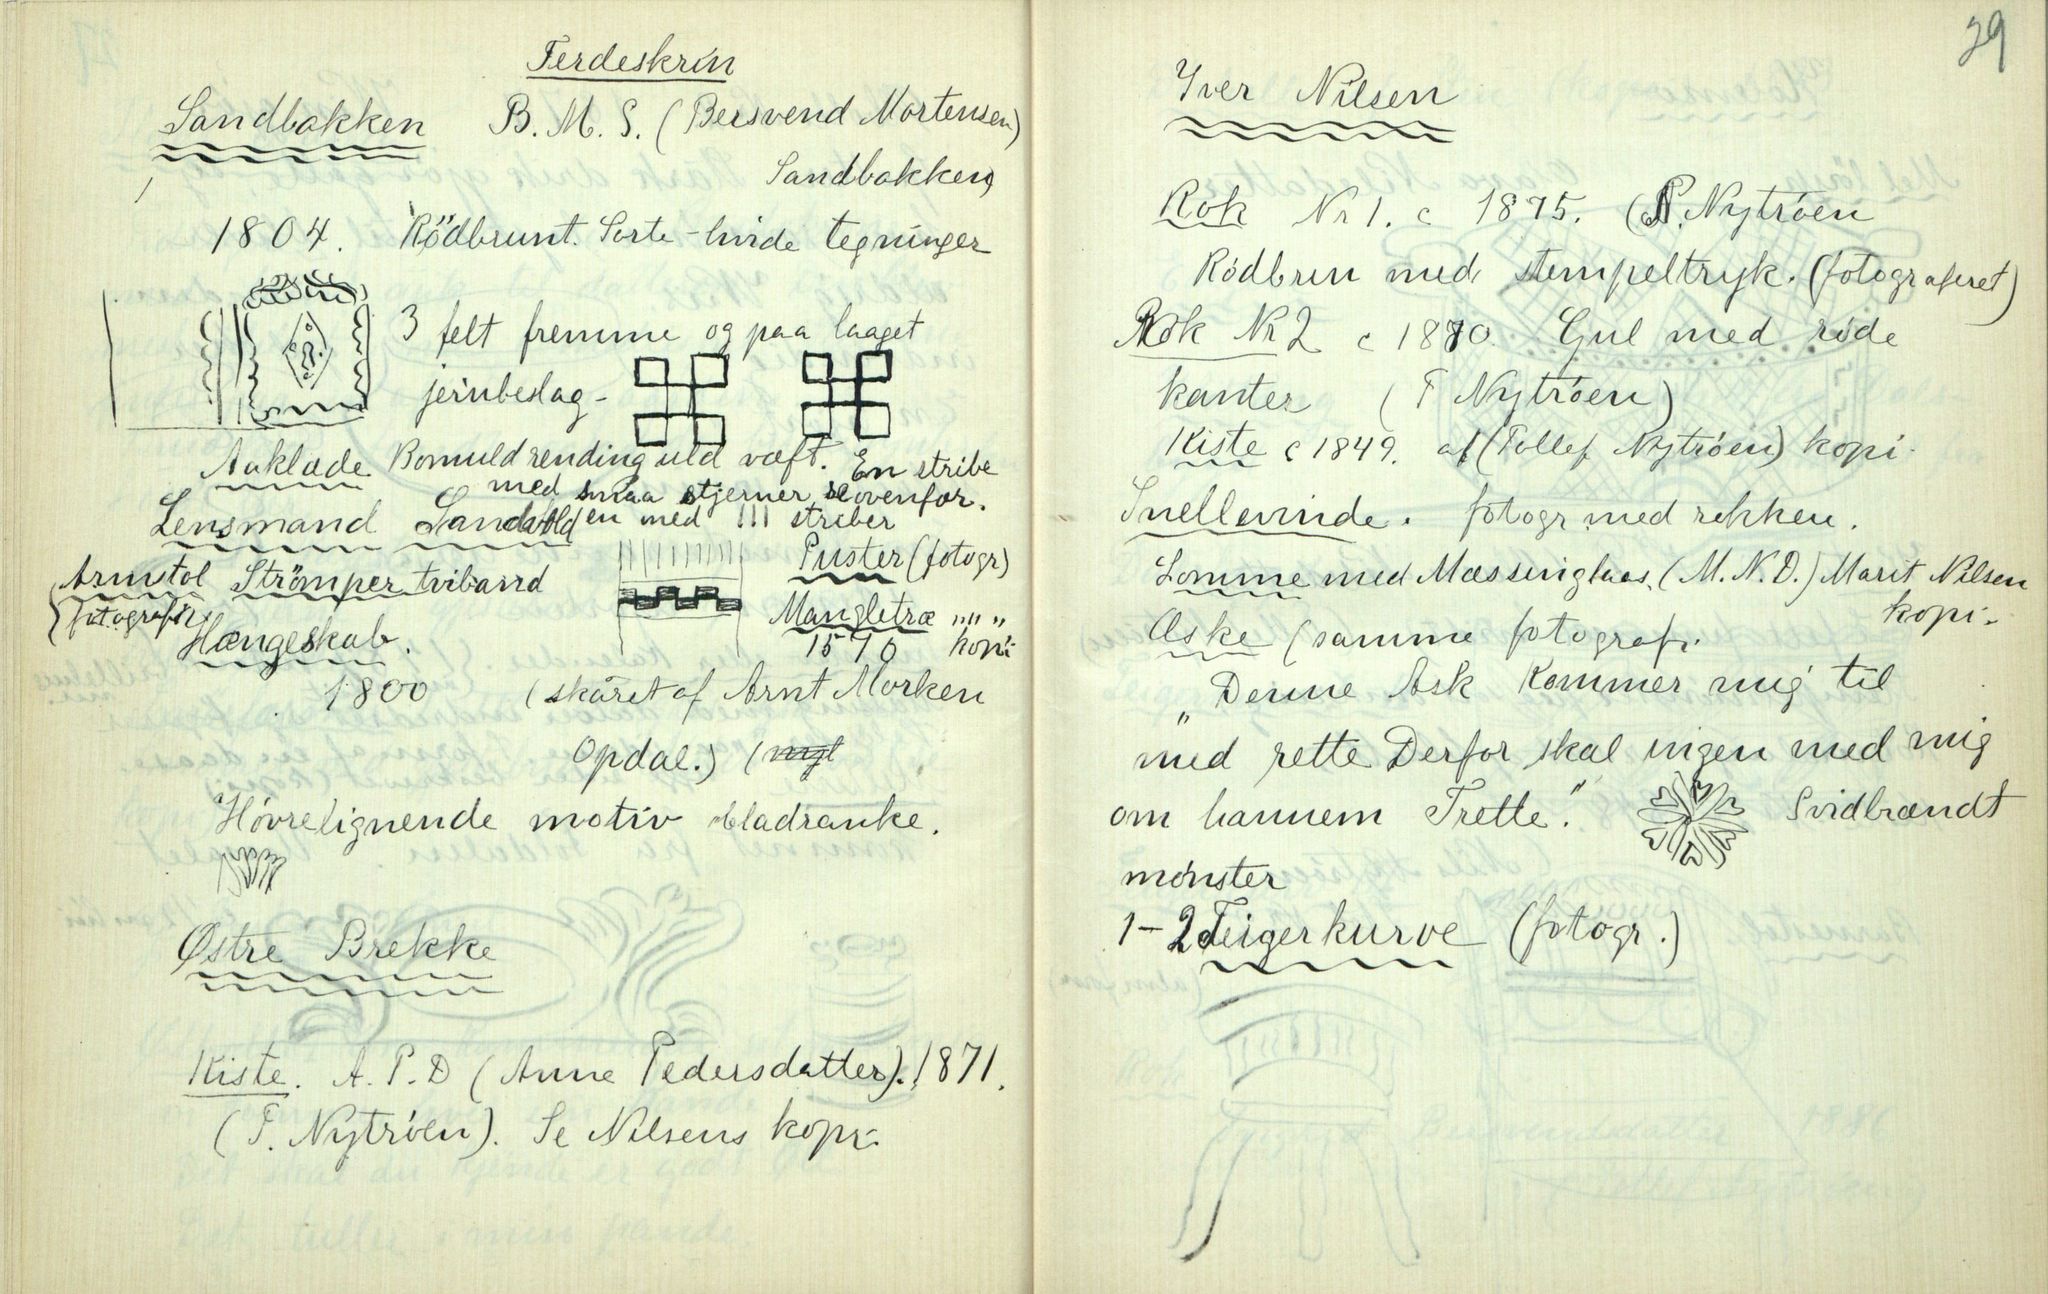 Ferdeskrin
Sandbakken B. M. S. (Bersvend Mortensen)
Sandbakken
1804. Rödbrunt. Sorte-hvide tegninger
3 felt fremme og paa laaget
jernbeslag-
Aaklæde Bomuld rending uld væft. En stribe
med smaa stjerner se ovenfor.
Lensmand Sandvold en med III striber
Armstol Strömper tvibaand Puster (fotogr)
(fotografi) Mangletræ „ „ „
Hængeskab. 1570 kopi
1800 (skåret af Arnt Morken
Opdal.)
"Høvrelignende motiv bladranke.
Østre Brekke
Kiste. A. P. D (Anne Pedersdatter). 1871.
(T. Nytrøen). Se Nilsens kopi-
29
Iver Nilsen
Rok Nr 1. c 1875. (P. Nytrøen
Rödbrun med stempeltryk. (fotograferet)
Rok Nr 2 c 1870. Gul med röde
kanter (T Nytrøen)
Kiste c 1849. af (Tollef Nytrøen) kopi-
Snellevinde. fotogr med rokken.
Lomme med Mæssinglaas. (M. N. D.) Marit Nilsen
kopi-
Æske (samme fotografi.
"Denne Ask kommer mig til
med rette Derfor skal ingen med mig
om hannem Trette." Svidbrændt
mønster
1-2 Teigerkurve (fotogr.)